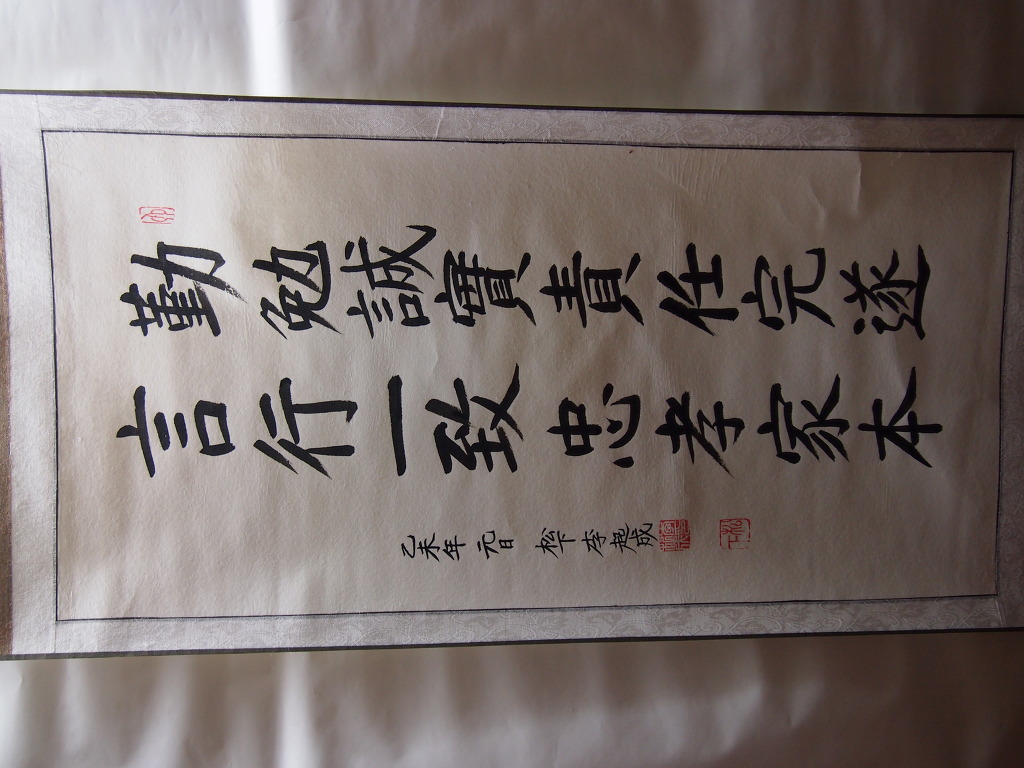 勤勉誠實責任完遂
言行一致忠孝家本
乙未年 元日 松下 李起成
松下